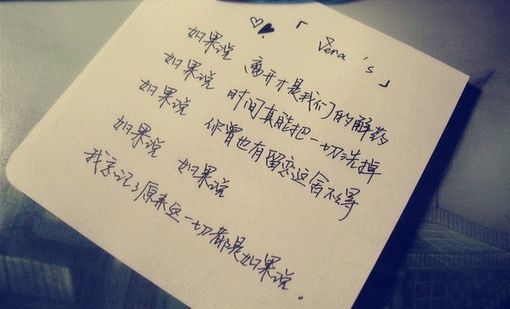 「Vera's」
如果说 离开才是我们的解药
如果说 时间真能把一切洗掉
如果说 你曾也有留恋过舍不得
如果说 如果说
我忘记了原来这一切都是如果说。